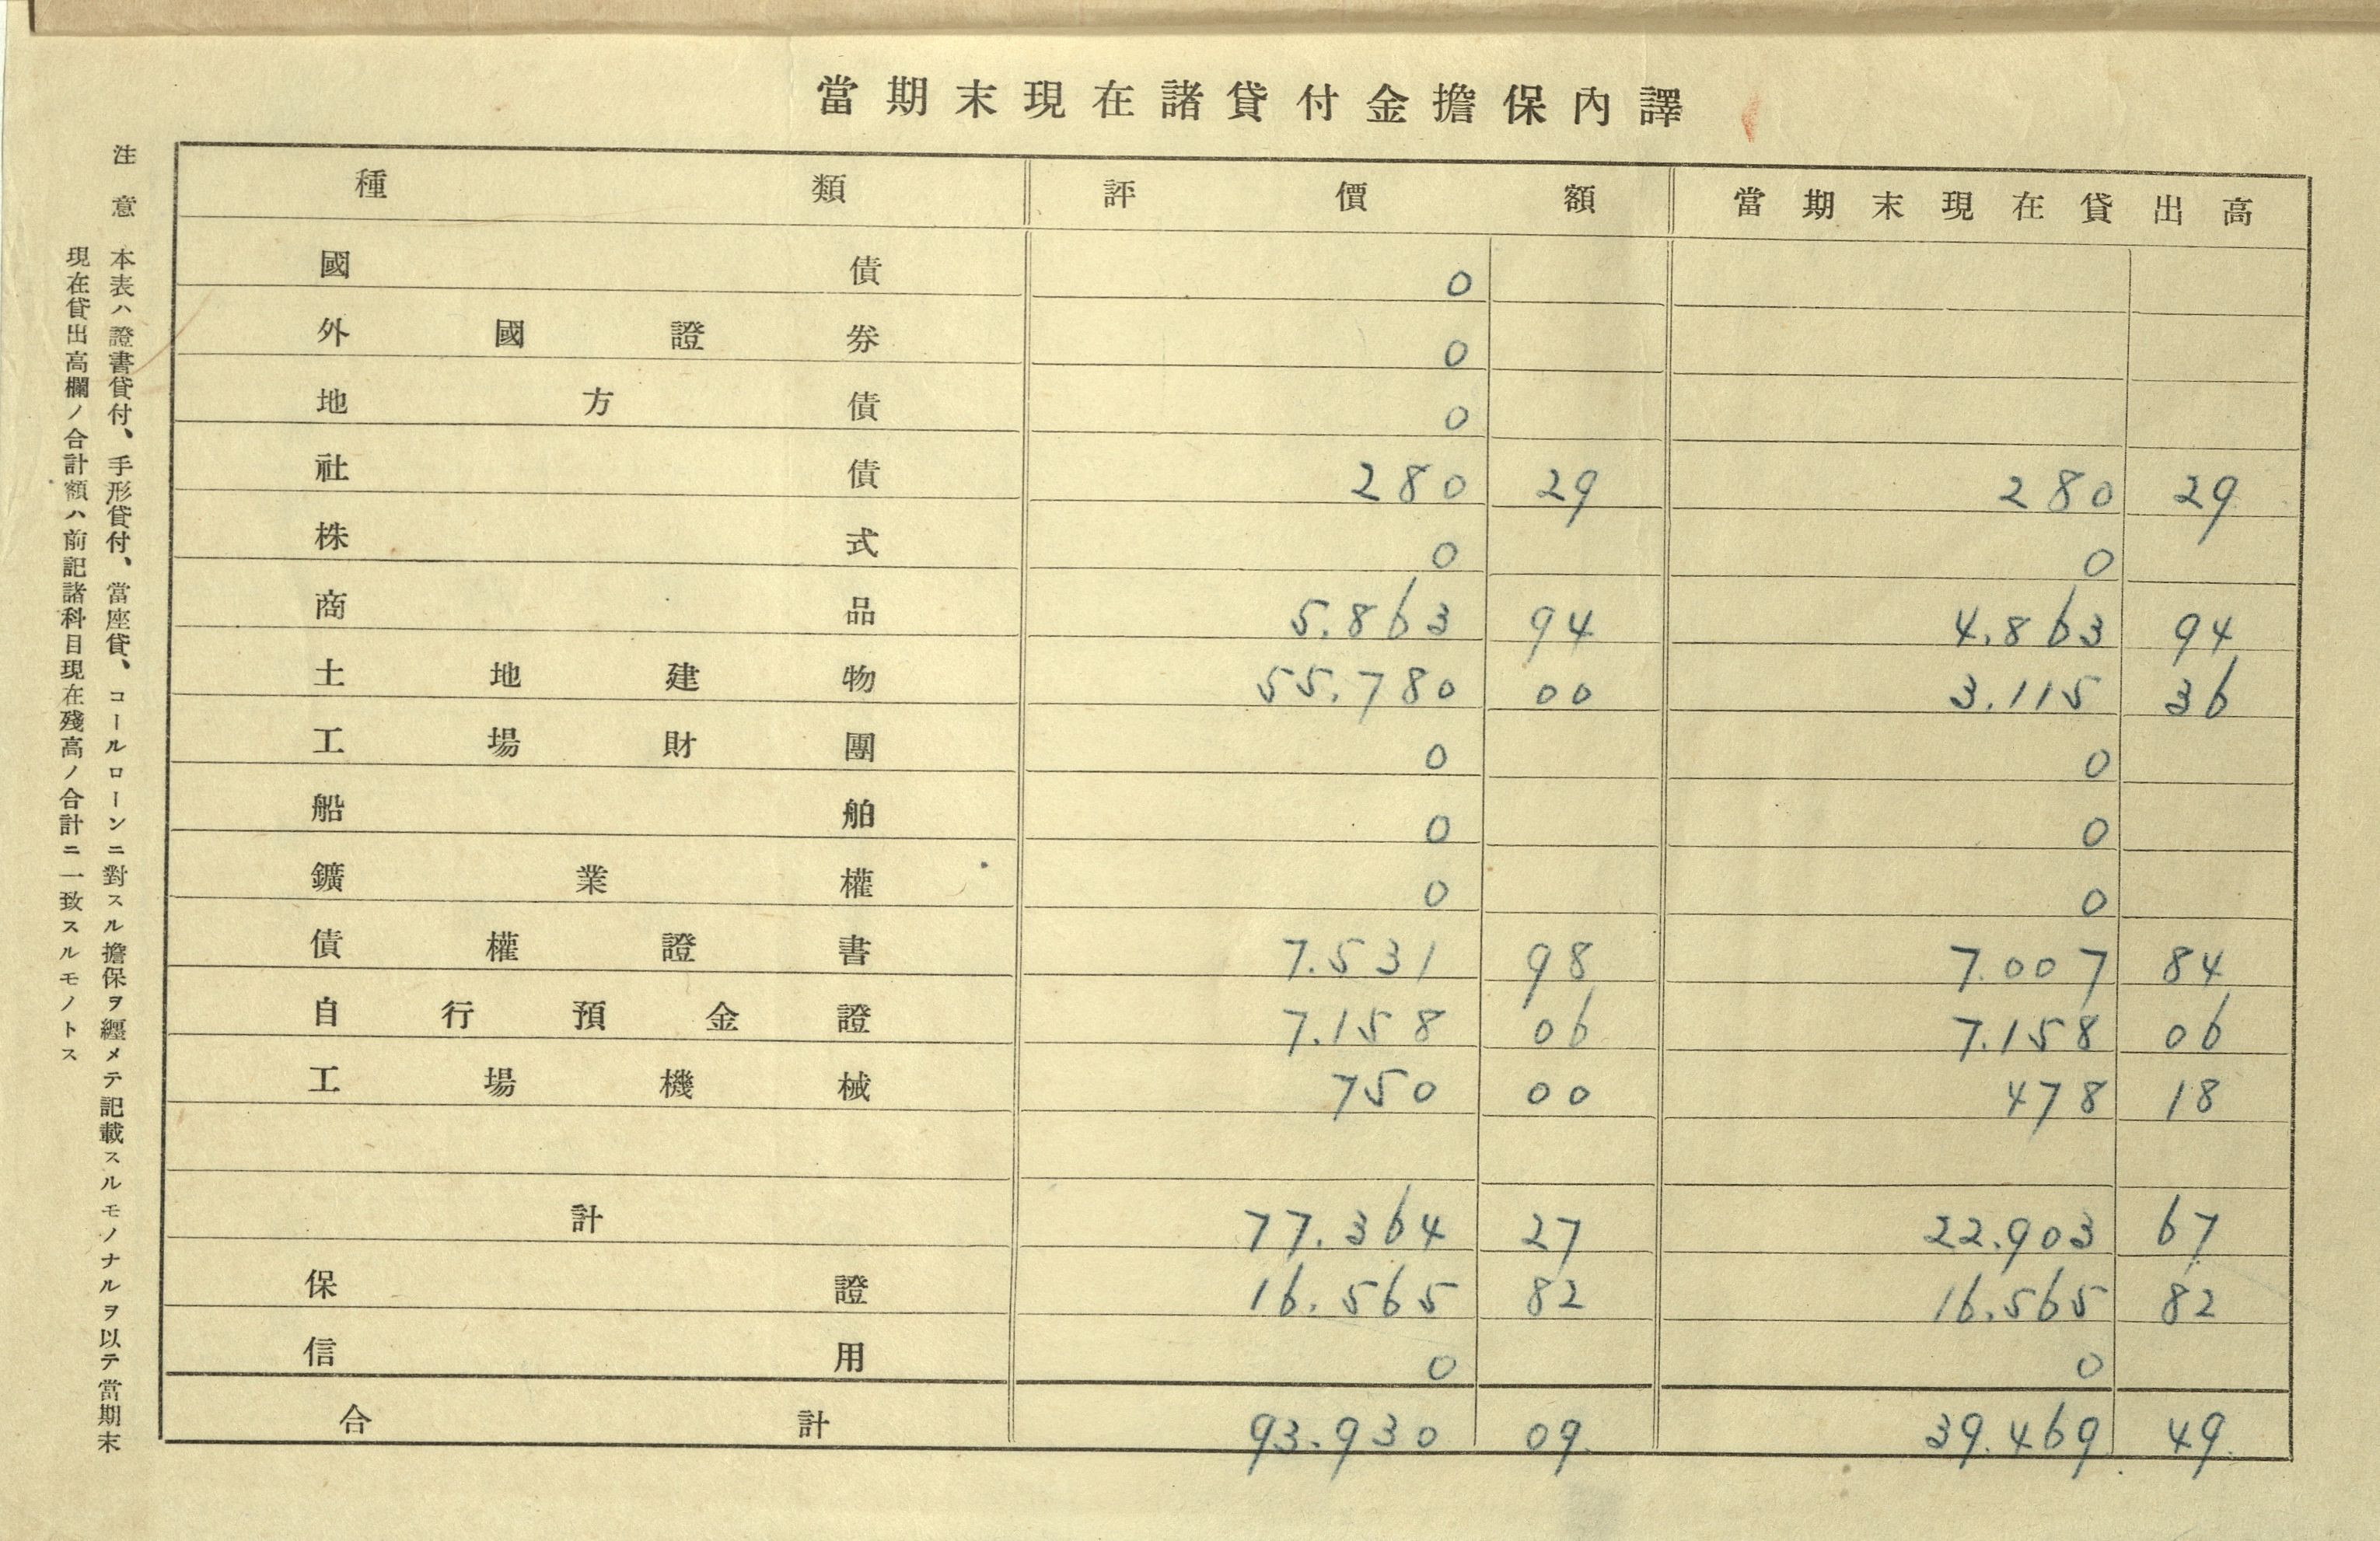 當期末現在諸貸付金擔保內譯
種類 評價額 當期末現在貸出高
國債 0
外國證券 0
地方債 0
社債 280 29 280 29
株式 0 0
商品 5.863 94 4.863 94
土地建物 55.780 00 3.115 36
工場財團 0 0
船舶 0 0
鑛業權 0 0
債權證書 7.531 98 7.007 84
自行預金證 7.158 06 7.158 06
工場機械 750 00 478 18
計 77.364 27 22.903 67
保證 16.565 82 16.565 82
信用 0 0
合計 93.930 09 39.469 49
注意 本表ハ證書貸付、手形貸付、當座貸、コールローンニ對スル擔保ヲ纒メテ記載スルモノナルヲ以テ當期末
現在貸出高欄ノ合計額ハ前記諸科目現在殘高ノ合計ニ一致スルモノトス